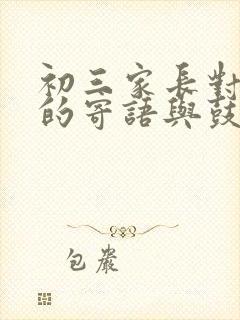 初三家長對
的寄語與鼓
包嚴